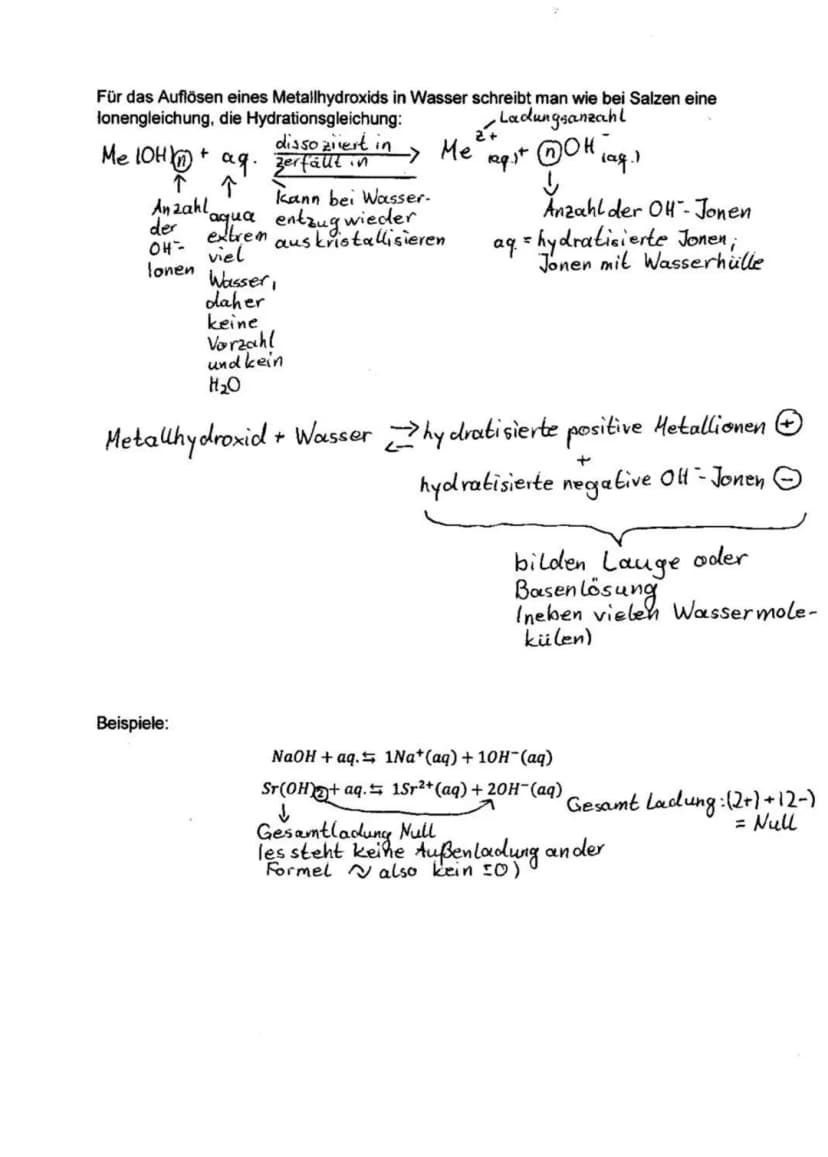 Für das Auflösen eines Metallhydroxids in Wasser schreibt man wie bei Salzen eine
Ionengleichung, die Hydrationsgleichung:
Ladungsanzahl
Me(OH)n + aq. dissoziiert in → Me2+ (aq.) + n OH- (aq.)
zerfällt in
Anzahl
der
OH--
Ionen
aqua
extrem
viel
Wasser,
daher
keine
Vorzahl
und kein
H2O
kann bei Wasser-
entzug wieder
auskristallisieren
Anzahl der OH-- Jonen
aq. = hydratisierte Jonen;
Jonen mit Wasserhülle
Metallhydroxid + Wasser ⇄ hydratisierte positive Metallionen ⊕
+
hydratisierte negative OH-- Jonen ⊖
bilden Lauge oder
Basenlösung
(neben vielen Wassermole-
külen)
Beispiele:
NaOH + aq.⇆ 1Na+(aq) + 1OH−(aq)
Sr(OH)2+ aq.⇆ 1Sr2+(aq) + 2OH−(aq)
Gesamt Ladung:(2+)+(2-)
= Null
Gesamtladung Null
(es steht keine Außenladung an der
Formel ~ also kein ±0)